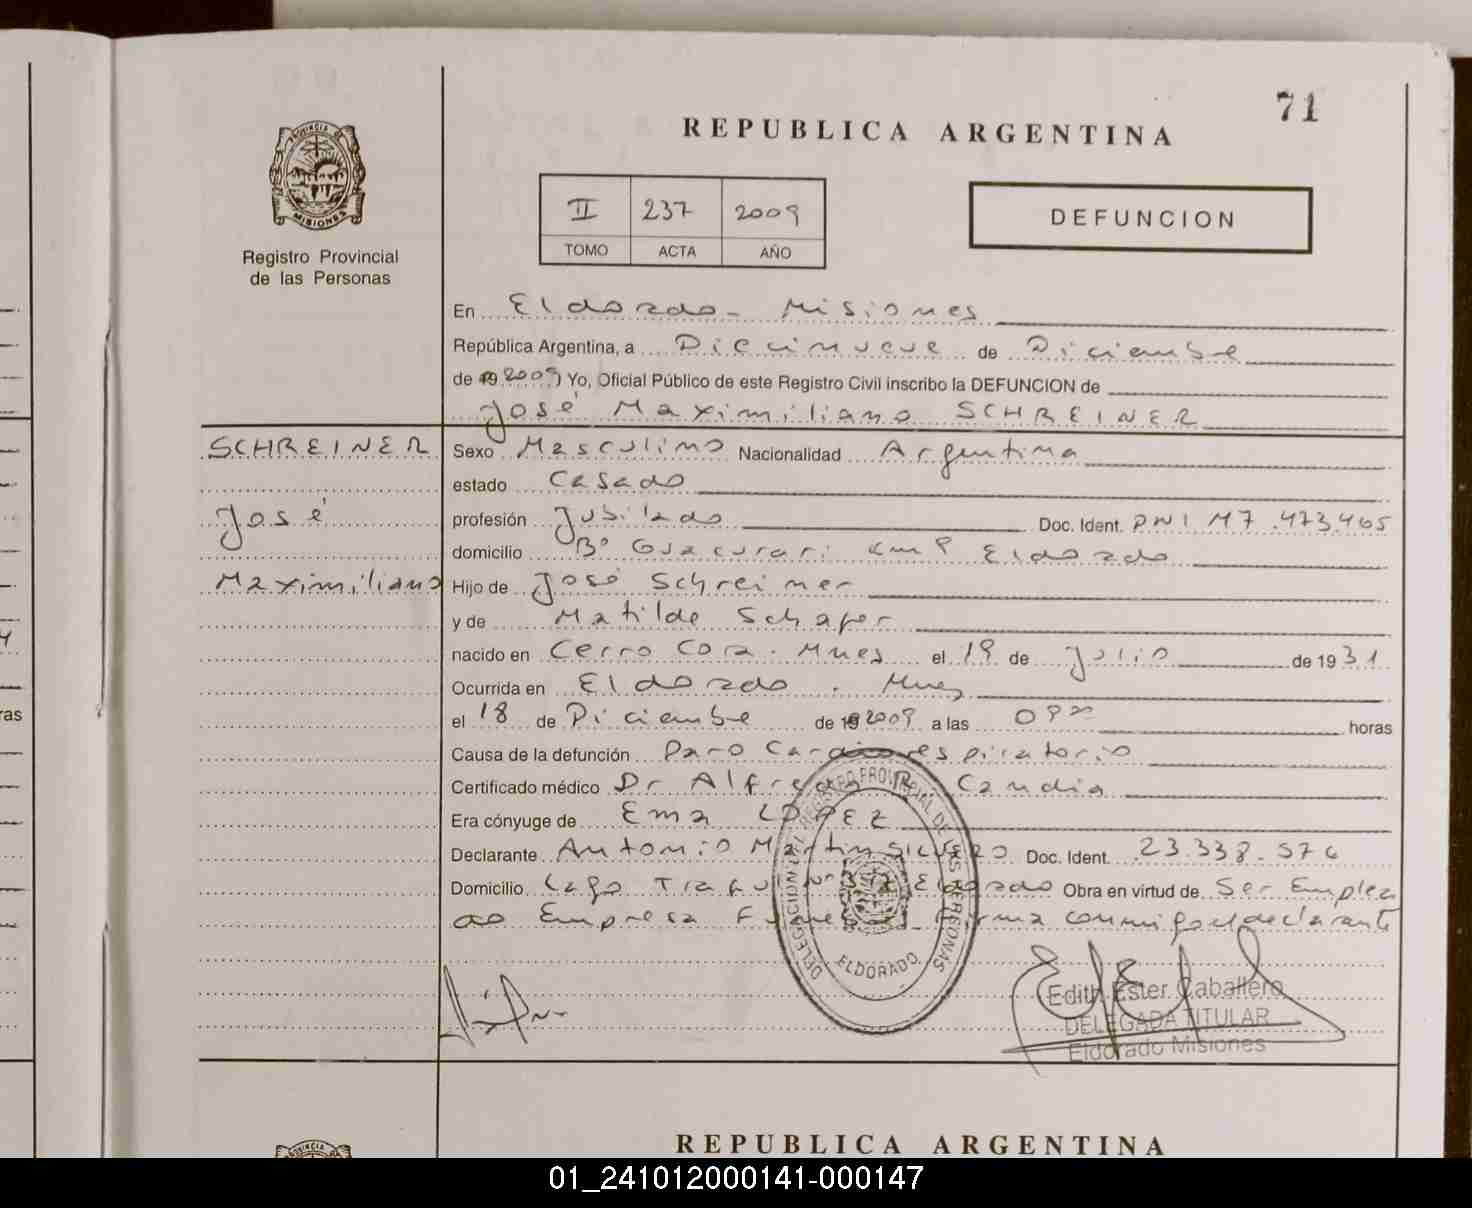 71
REPUBLICA ARGENTINA
PROVINCIA DE
MISIONES
Registro Provincial
de las Personas
II 237 2009
TOMO ACTA AÑO
DEFUNCION
En Eldorado - Misiones
República Argentina, a Diecinueve de Diciembre
de 2009) Yo, Oficial Público de este Registro Civil inscribo la DEFUNCION de
José Maximiliano SCHREINER
SCHREINER
José
Maximiliano
Sexo Masculino Nacionalidad Argentina
estado Casado
profesión Jubilado Doc. Ident. DNI M7.473.465
domicilio Bº Guacurari km 9 Eldorado
Hijo de José Schreiner
y de Matilde Schafer
nacido en Cerro Cora. Mnes el 19 de Julio de 1931
Ocurrida en Eldorado. Mnes
el 18 de Diciembre de 2009 a las 09 horas
Causa de la defunción Paro Cardiorespiratorio
Certificado médico Dr Alfredo R. Candia
Era cónyuge de Ema LOPEZ
Declarante Antonio Martin Doc. Ident. 23.338.576
Domicilio Lago Eldorado Obra en virtud de Ser Emplea
do Empresa Firma conmigo el declarante
DELEGACION DEL REGISTRO PROVINCIAL DE LAS PERSONAS
ELDORADO
Edith Ester Caballero
DELEGADA TITULAR
Eldorado Misiones
PROVINCIA
REPUBLICA ARGENTINA
ras
01_241012000141-000147